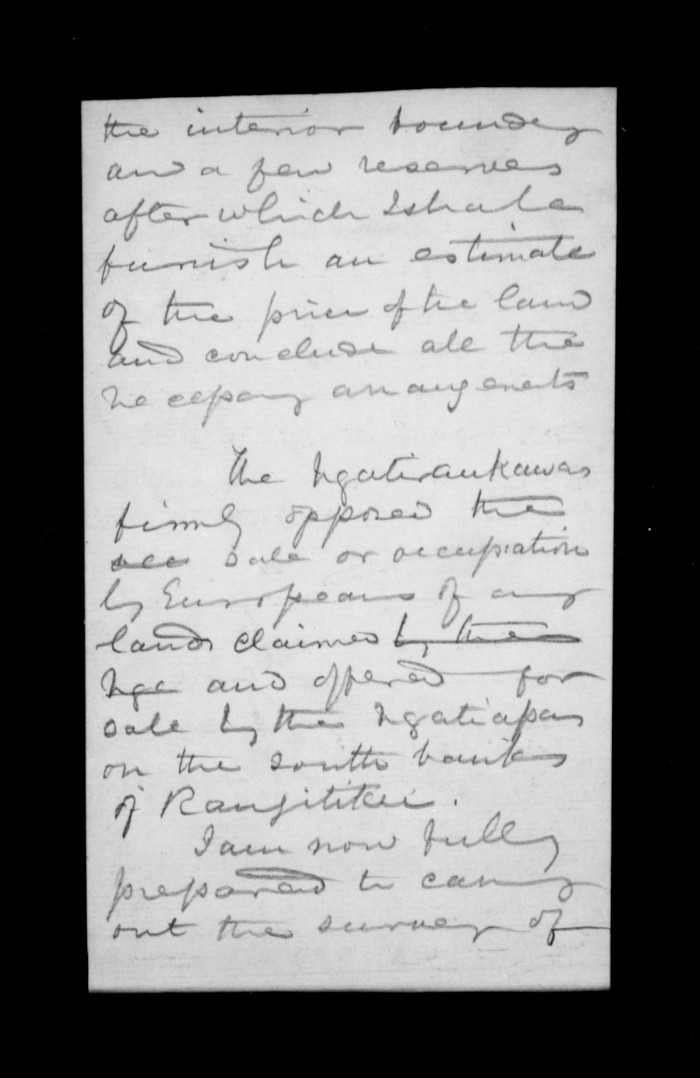 the interior boundary
and a few reserves
after which I shall
furnish an estimate
of the price of the land
and conclude all the
necessary arrangements
The Ngatiraukawas
firmly opposed the
see sale or occupation
by Europeans of any
lands claimed by the
Nga and offered for
sale by the Ngatiapas
on the south banks
of Rangitikei.
I am now fully
prepared to carry
out the survey of